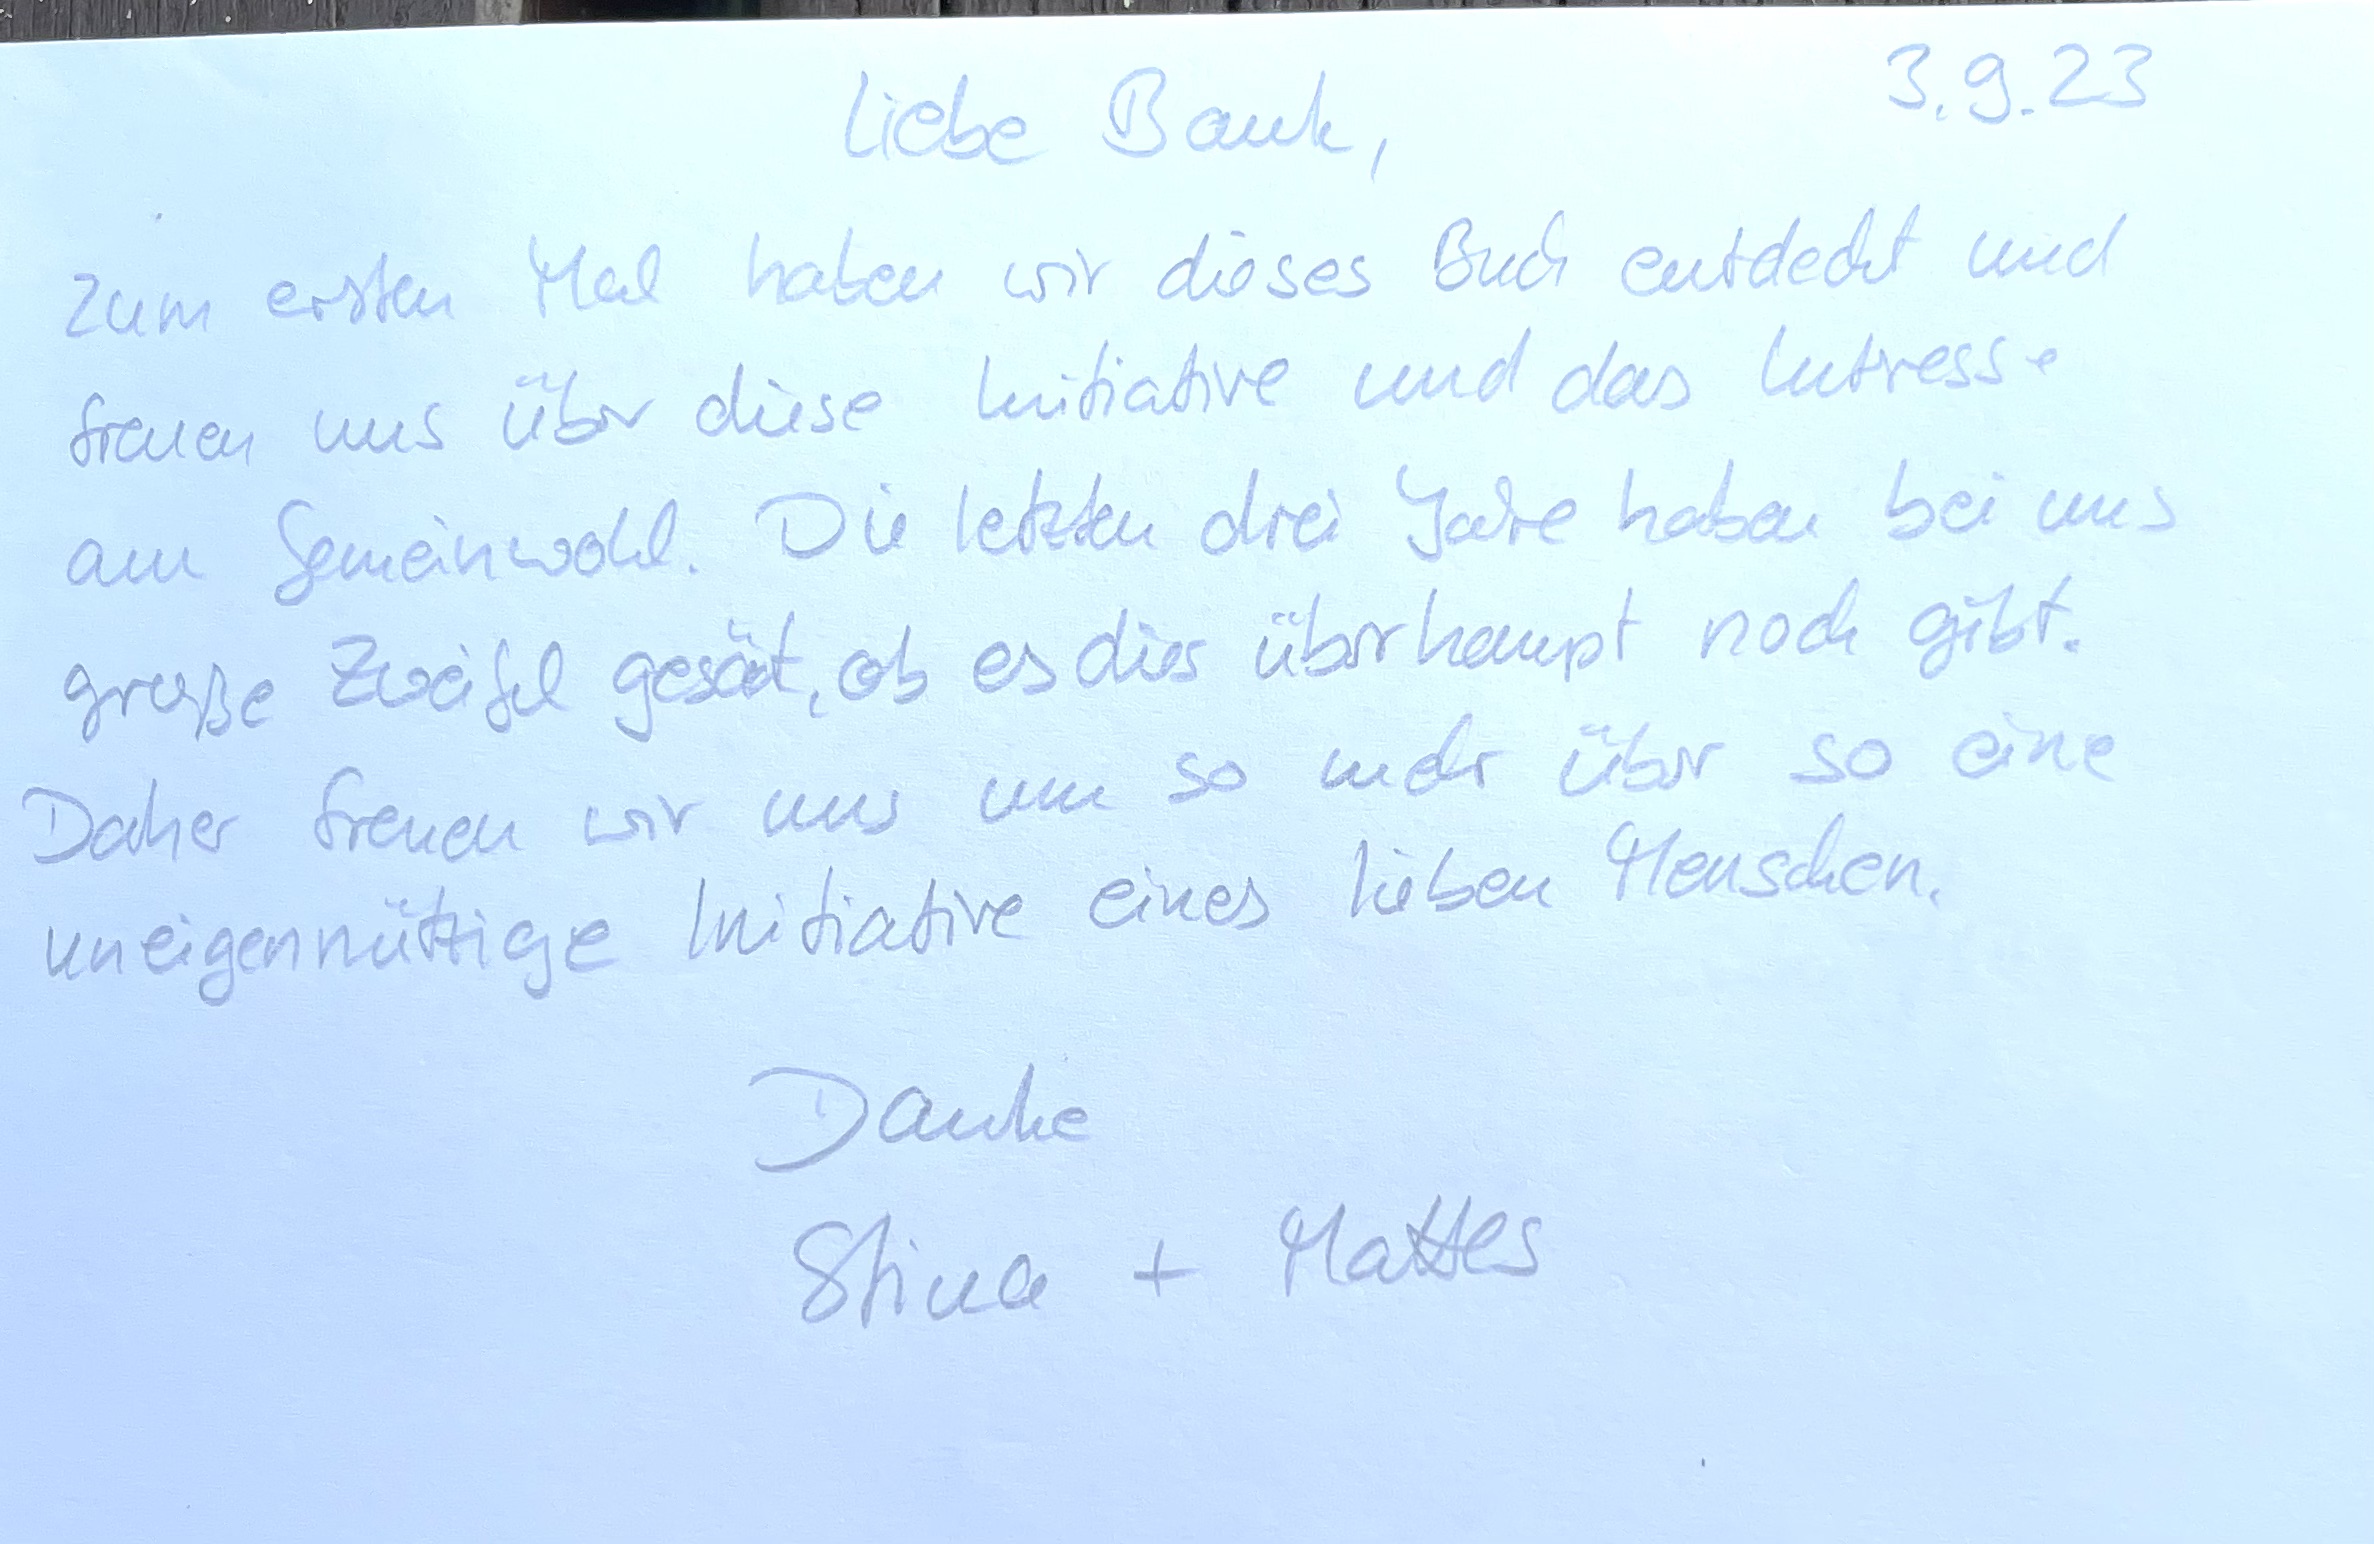 3.9.23
Liebe Bank,
Zum ersten Mal haben wir dieses Buch entdeckt und
freuen uns über diese Initiative und das Intresse
am Gemeinwohl. Die letzten drei Jahre haben bei uns
große Zweifel gesät, ob es dies überhaupt noch gibt.
Daher freuen wir uns um so mehr über so eine
uneigennützige Initiative eines lieben Menschen.
Danke
Stina + Mattes